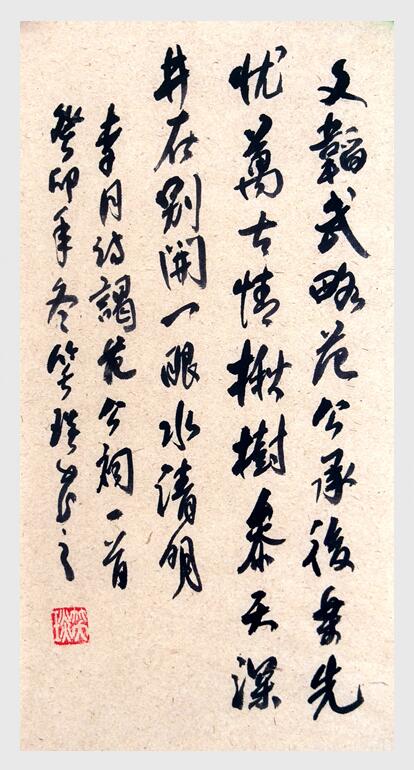 文韜武略范公承後乐先
忧萬古情楸樹参天深
井在别開一眼水清明
李月诗謁范公祠一首
癸卯年冬笑書之